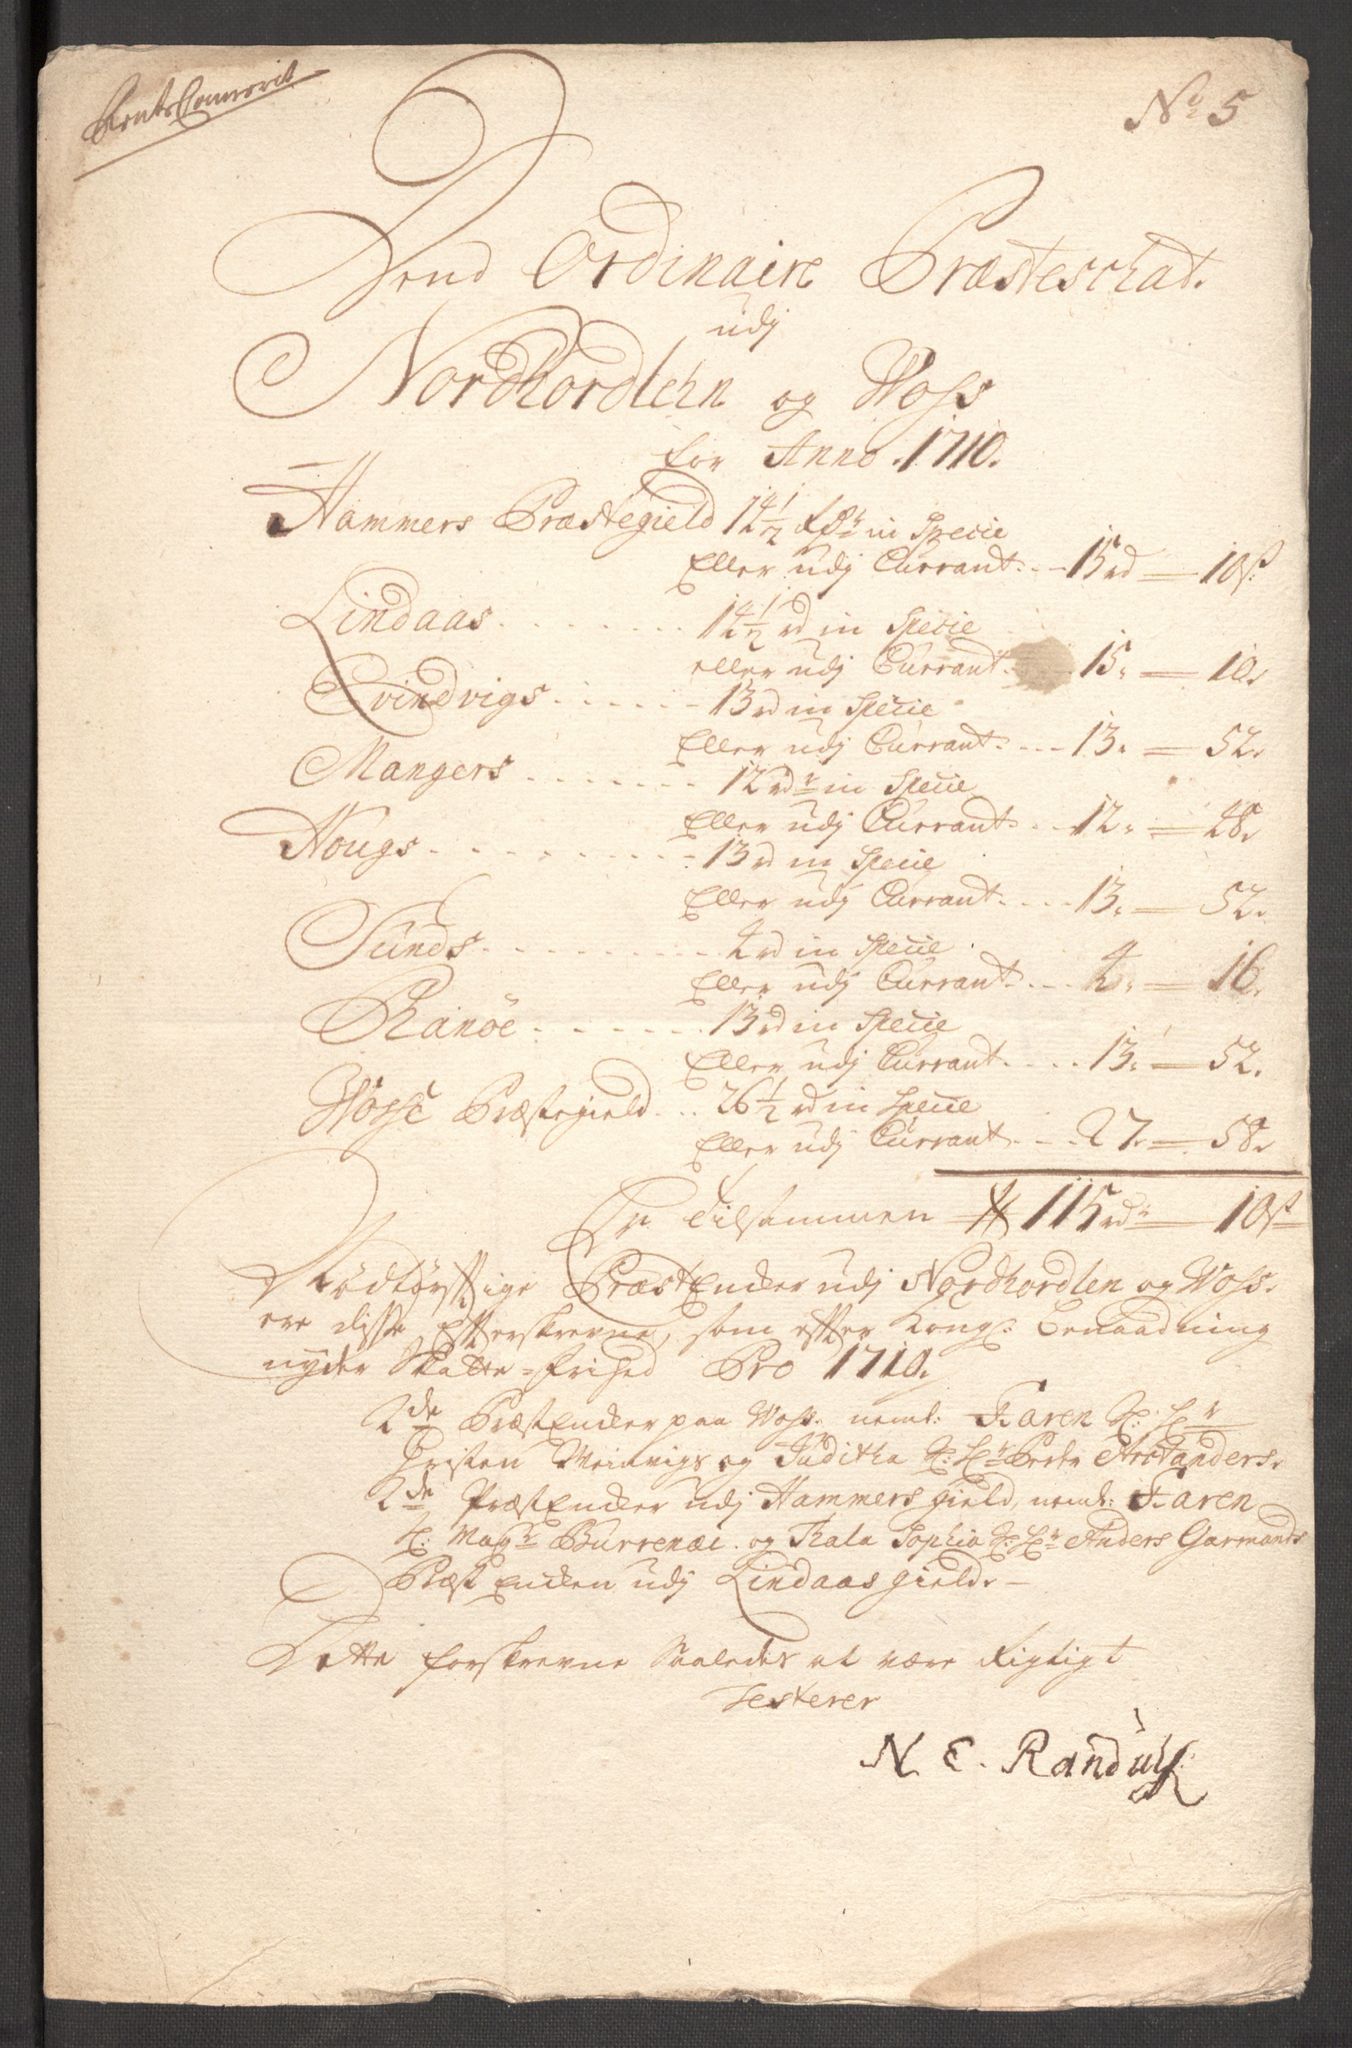 No 5
Dend Ordinaire Præsteschat.
udj
Nordhordlehn og Woss
for Anno 1710.
Hammers Præstegield 14½ Rdr in Specie
Eller udj Currant 15 rd 10 s
Lindaas 14½ rd in Specie
eller udj Currant 15. 10.
Evindvigs 13 rd in Specie
Eller udj Currant 13. 52.
Mangers 12 rdr in Specie
Eller udj Currant 12. 48.
Hougs 13 rd in Specie
Eller udj Currant 13. 52.
Sunds 4 rd in Specie
Eller udj Currant 4. 16.
Ranöe 13 rd in Specie
Eller udj Currant 13. 52.
Wosse Præstegield 26½ rd in Specie
Eller udj Currant 27. 58.
Er tilsammen 115 rdr 10 s
Nödtörfftige PræstEncker udj Nordhordlen og Woss.
ere disse Effterskrevne, som effter Kongl: Benaadning
nyder Skatte=frihed Pro 1710.
2de PræstEncker paa Woss. neml: Karen Sl: Hr
Christen Weinvigs og Juditha Sl: Hr Peder Arctanders.
2de PræstEncker udj Hammers gield, neml: Karen
Sl: Magr og Sophia Sl: Hr Anders Garmands
Præst Encken udj Lindaas gield.
Dette forskrevne Saaledes at være Rigtigt
Testerer
N. E. Randulf